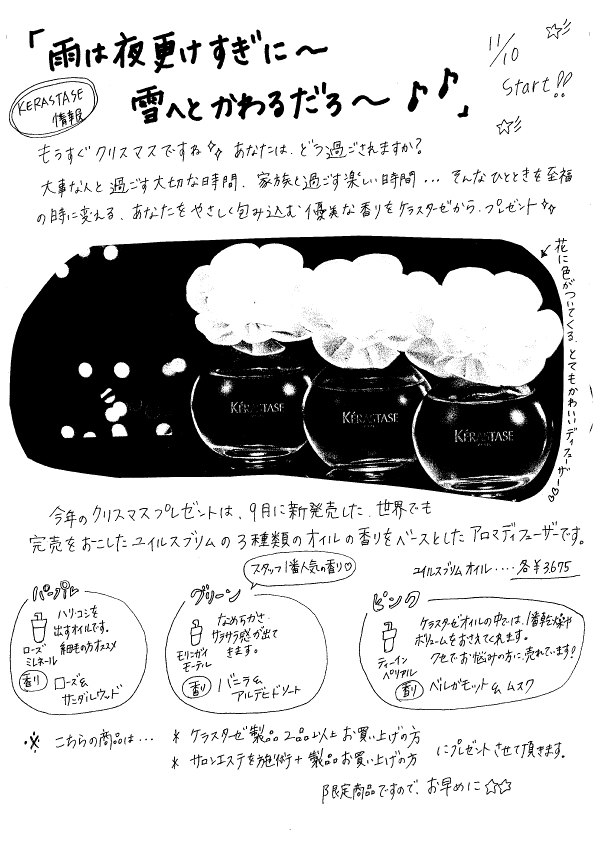 「雨は夜更けすぎに～
雪へとかわるだろ～♪♪」
11/10
Start!!
KERASTASE
情報
もうすぐクリスマスですね☆☆ あなたは、どう過ごされますか？
大事な人と過ごす大切な時間、家族と過ごす楽しい時間... そんなひとときを至福
の時に変える、あなたをやさしく包み込む優美な香りをケラスターゼから、プレゼント☆☆
花に色がついてくる、とてもかわいいディフューザー
KÉRASTASE
KÉRASTASE
KÉRASTASE
今年のクリスマスプレゼントは、9月に新発売した、世界でも
完売をおこしたユイルスブリムの3種類のオイルの香りをベースとしたアロマディフューザーです。
スタッフ1番人気の香り♡
ユイルスブリムオイル.....各￥3675
パープル
ハリ・コシを
出すオイルです。
細毛の方オススメ
ローズ
ミネラール
香り
ローズ&
サンダルウッド
グリーン
なめらかさ、
サラサラ感が出て
きます。
モリンガイ
モーテル
香り
バニラ&
アルデヒドソート
ピンク
ケラスターゼオイルの中では、1番乾燥や
ボリュームをおさえてくれます。
クセでお悩みの方に、売れています!
ティーイン
ペリアル
香り
ベルガモット&ムスク
※ こちらの商品は...
* ケラスターゼ製品2品以上お買い上げの方
* サロンエステを施術+製品お買い上げの方
にプレゼントさせて頂きます。
限定商品ですので、お早めに☆☆